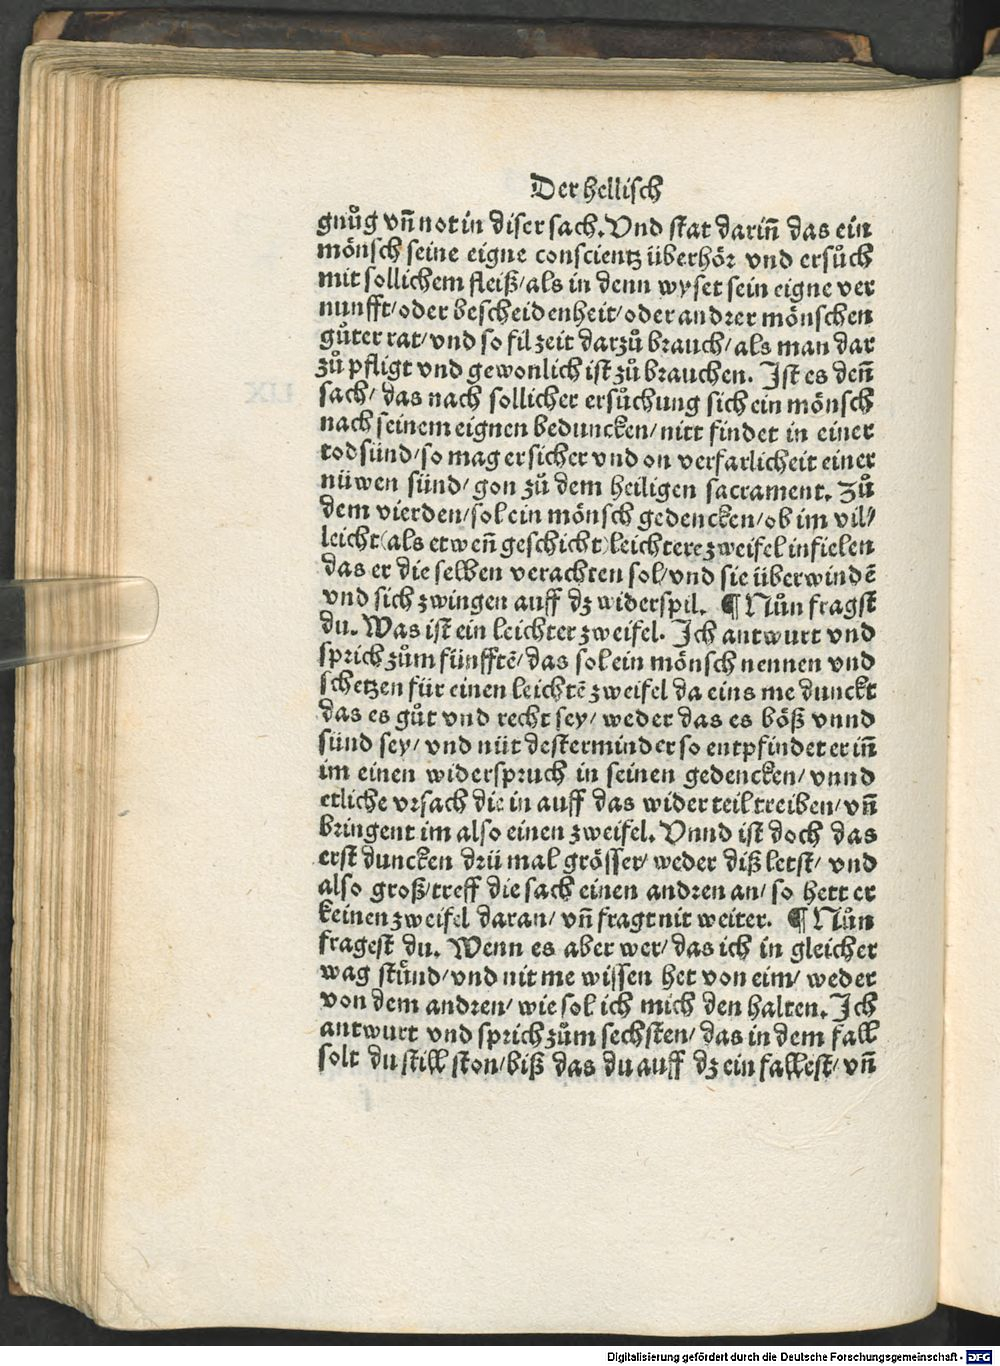 Der hellisch
gnůg vn̄ not in diser sach. Vnd stat darin̄ das ein
mönsch seine eigne conscientz überhör vnd ersůch
mit sollichem fleiß/ als in denn wyset sein eigne ver
nunfft/ oder bescheidenheit/ oder andrer mönschen
gůter rat/ vnd so fil zeit darzů brauch/ als man dar
zů pfligt vnd gewonlich ist zů brauchen. Ist es den̄
sach/ das nach sollicher ersůchung sich ein mönsch
nach seinem eignen beduncken/ nitt findet in einer
todsünd/ so mag er sicher vnd on verfarlicheit einer
nüwen sünd/ gon zů dem heiligen sacrament. Zů
dem vierden/ sol ein mönsch gedencken/ ob im vil/
leicht (als etwen̄ geschicht) leichtere zweifel infielen
das er die selben verachten sol/ vnd sie überwindē
vnd sich zwingen auff dz widerspil. ¶ Nůn fragst
du. Was ist ein leichter zweifel. Ich antwurt vnd
sprich zům fünfftē/ das sol ein mönsch nennen vnd
schetzen für einen leichtē zweifel da eins me dunckt
das es gůt vnd recht sey/ weder das es böß vnnd
sünd sey/ vnd nüt desterminder so entpfindet er in̄
im einen widerspruch in seinen gedencken/ vnnd
etliche vrsach die in auff das wider teil treiben/ vn̄
bringent im also einen zweifel. Vnnd ist doch das
erst duncken drü mal grösser/ weder diß letst/ vnd
also groß/ treff die sach einen andren an/ so hett er
keinen zweifel daran/ vn̄ fragt nit weiter. ¶ Nůn
fragest du. Wenn es aber wer/ das ich in gleicher
wag stůnd/ vnd nit me wissen het von eim/ weder
von dem andren/ wie sol ich mich den halten. Ich
antwurt vnd sprich zům sechsten/ das in dem fall
solt du still ston/ biß das du auff dz ein fallest/ vn̄
Digitalisierung gefördert durch die Deutsche Forschungsgemeinschaft - DFG